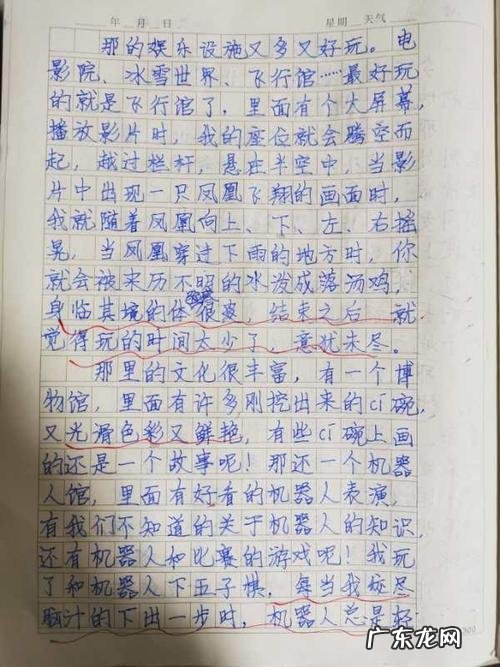 年 月 日 星期 天气
那的娱乐设施又多又好玩。电
影院、冰雪世界、飞行馆……最好玩
的就是飞行馆了，里面有个大屏幕，
播放影片时，我的座位就会腾空而
起，越过栏杆，悬在半空中，当影
片中出现一只凤凰飞翔的画面时，
我就随着凤凰向上、下、左、右摇
晃，当凤凰穿过下雨的地方时，你
就会被来历不明的水泼成落汤鸡，
身临其境的体很滚，结束之后，就
觉得玩的时间太少了，意犹未尽。
那里的文化很丰富，有一个博
物馆，里面有许多刚挖出来的cí碗，
又光滑色彩又鲜艳，有些cí碗上画
的还是一个故事呢！那还一个机器
人馆，里面有好看的机器人表演，
有我们不知道的关于机器人的知识，
还有机器人和比赛的游戏呢！我玩
了和机器人下五子棋，每当我极尽
脑汁的下出一步时，机器人总是轻
广东龙网
www.gdgbn.com